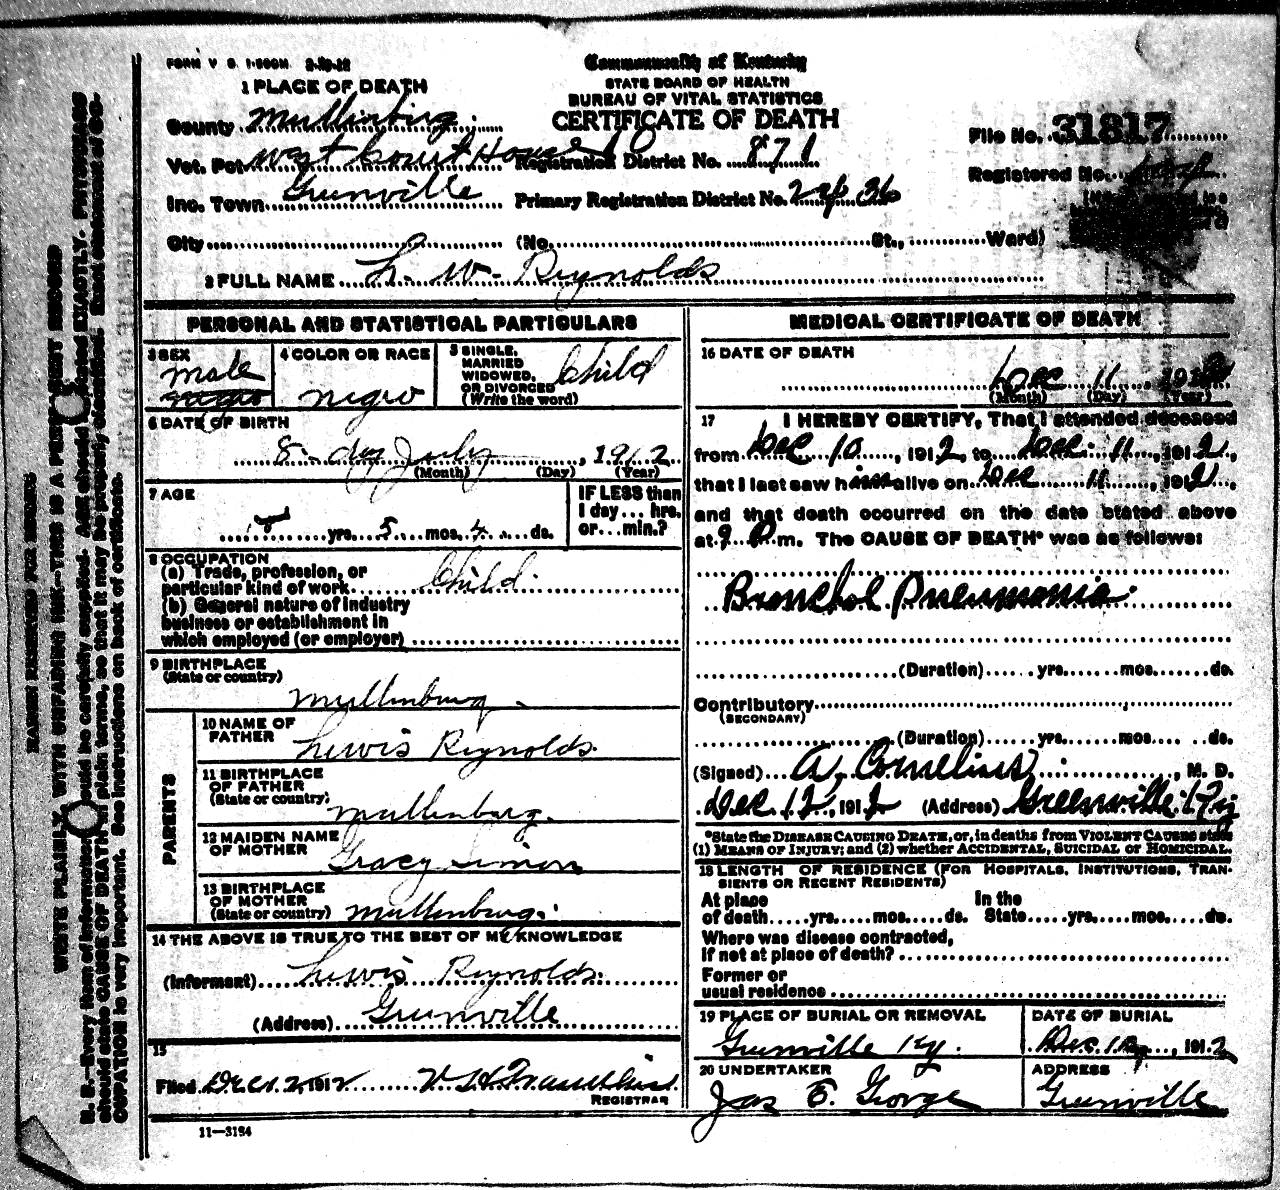 FORM V. S. 1-500M. 2-19-12
Commonwealth of Kentucky
STATE BOARD OF HEALTH
BUREAU OF VITAL STATISTICS
CERTIFICATE OF DEATH
1 PLACE OF DEATH
County Muhlenburg.
Vot. Pct. West Court House 10 Registration District No. 871
Inc. Town Greenville Primary Registration District No. 36
City (No. St., Ward)
File No. 31817
Registered No.
2 FULL NAME L. W. Reynolds
PERSONAL AND STATISTICAL PARTICULARS
3 SEX Male
4 COLOR OR RACE negro
5 SINGLE, MARRIED WIDOWED, OR DIVORCED (Write the word) Child
6 DATE OF BIRTH
8 - day July, 1912
(Month) (Day) (Year)
7 AGE
yrs. 5 mos. 4 ds.
IF LESS than 1 day... hrs. or... min.?
8 OCCUPATION
(a) Trade, profession, or particular kind of work Child.
(b) General nature of industry business or establishment in which employed (or employer)
9 BIRTHPLACE
(State or country)
Muhlenburg.
PARENTS
10 NAME OF FATHER Lewis Reynolds.
11 BIRTHPLACE OF FATHER (State or country) Muhlenburg.
12 MAIDEN NAME OF MOTHER Gracy Simon
13 BIRTHPLACE OF MOTHER (State or country) Muhlenburg.
14 THE ABOVE IS TRUE TO THE BEST OF MY KNOWLEDGE
(Informant) Lewis Reynolds.
(Address) Greenville
15
Filed Dec 12, 1912
REGISTRAR
11-3184
MEDICAL CERTIFICATE OF DEATH
16 DATE OF DEATH
Dec 11, 1912
(Month) (Day) (Year)
17 I HEREBY CERTIFY, That I attended deceased
from Dec 10, 1912, to Dec. 11, 1912,
that I last saw him alive on Dec 11, 1912,
and that death occurred on the date stated above
at 9 P.m. The CAUSE OF DEATH* was as follows:
Bronchol Pneumonia.
(Duration) yrs. mos. ds.
Contributory
(SECONDARY)
(Duration) yrs. mos. ds.
(Signed) A. Cornelius, M. D.
Dec 12, 1912 (Address) Greenville Ky
*State the DISEASE CAUSING DEATH, or, in deaths from VIOLENT CAUSES state
(1) MEANS OF INJURY; and (2) whether ACCIDENTAL, SUICIDAL OF HOMICIDAL.
18 LENGTH OF RESIDENCE (FOR HOSPITALS, INSTITUTIONS, TRAN-
SIENTS OR RECENT RESIDENTS)
At place of death yrs. mos. ds. In the State yrs. mos. ds.
Where was disease contracted,
If not at place of death?
Former or
usual residence
19 PLACE OF BURIAL OR REMOVAL Greenville Ky.
DATE OF BURIAL Dec 12, 1912
20 UNDERTAKER Jas E. George
ADDRESS Greenville
MARGIN RESERVED FOR BINDING
WRITE PLAINLY, WITH UNFADING INK—THIS IS A PERMANENT RECORD
N. B.—Every item of information should be carefully supplied. AGE should be stated EXACTLY. PHYSICIANS
should state CAUSE OF DEATH in plain terms, so that it may be properly classified. Exact statement of OC-
CUPATION is very important. See instructions on back of certificate.